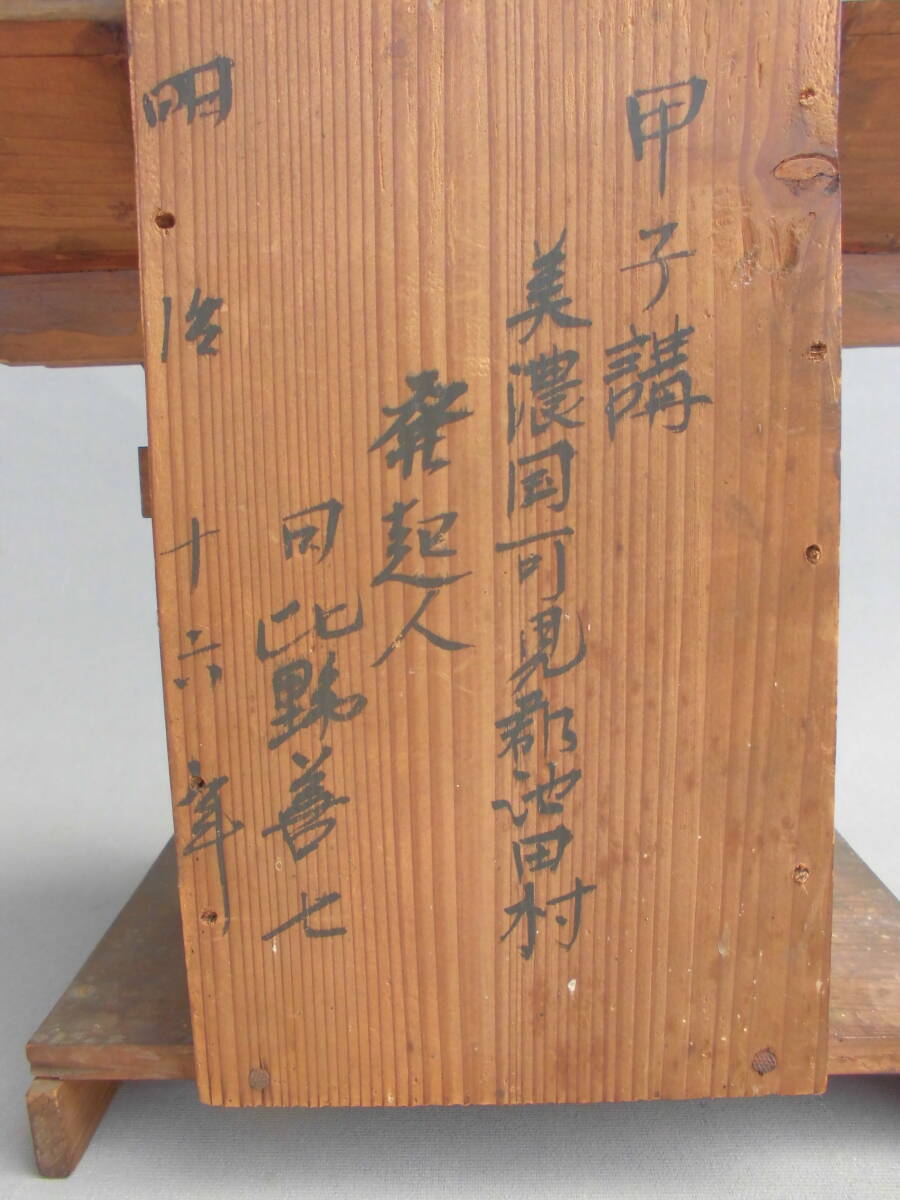 甲子講
美濃国可児郡池田村
発起人
同比野善七
明治十六年